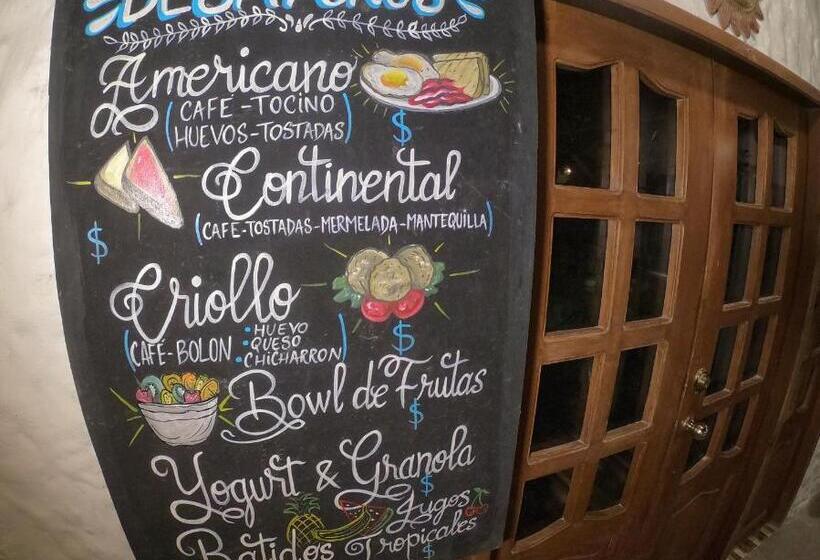 DESAYUNOS
Americano
(CAFE-TOCINO
HUEVOS-TOSTADAS)
$
Continental
(CAFE-TOSTADAS-MERMELADA-MANTEQUILLA)
$
Criollo
(CAFÉ-BOLON : HUEVO
QUESO
CHICHARRON)
$
Bowl de Frutas
$
Yogurt & Granola
$
Jugos
Batidos Tropicales
$